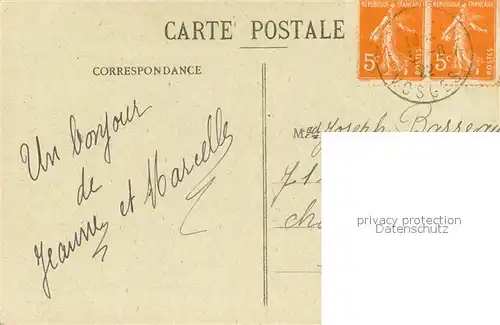 CARTE POSTALE
CORRESPONDANCE
Un bonjour
de
Jeanne et Marcelle
REPUBLIQUE FRANÇAISE
5c
POSTES
REPUBLIQUE FRANÇAISE
5c
POSTES
22
VOSGES
Joseph Barreau
privacy protection
Datenschutz